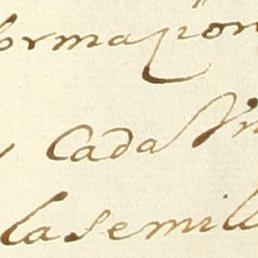 ormaçion
Cada Vn
la semill